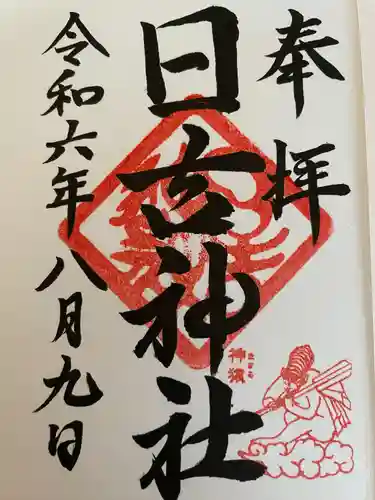 奉拝
日吉神社
神猿
まさる
令和六年八月九日